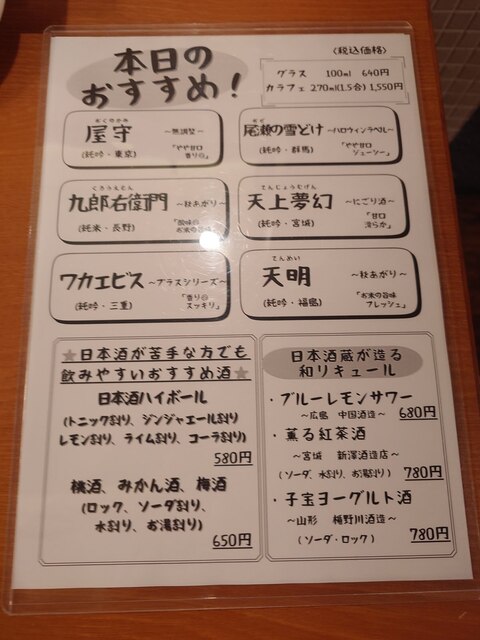 本日の
おすすめ！
〈税込価格〉
グラス 100ml 640円
カラフェ 270ml(1.5合) 1,550円
おくのかみ
屋守 ～無調整～
(純吟・東京) 「やや甘口 香り◎」
おぜ
尾瀬の雪どけ ～ハロウィンラベル～
(純吟・群馬) 「やや甘口 ジューシー」
くろうえもん
九郎右衛門 ～秋あがり～
(純米・長野) 「酸味◎ お米の旨味」
てんじょうむげん
天上夢幻 ～にごり酒～
(純吟・宮城) 「甘口 滑らか」
ワカエビス ～プラスシリーズ～
(純吟・三重) 「香り◎ スッキリ」
てんめい
天明 ～秋あがり～
(純吟・福島) 「お米の旨味 フレッシュ」
★日本酒が苦手な方でも
飲みやすいおすすめ酒★
日本酒ハイボール
(トニック割り、ジンジャエール割り
レモン割り、ライム割り、コーラ割り)
580円
桃酒、みかん酒、梅酒
(ロック、ソーダ割り、
水割り、お湯割り)
650円
日本酒蔵が造る
和リキュール
・ブルーレモンサワー
～広島 中国酒造～ 680円
・薫る紅茶酒
～宮城 新澤酒造店～
(ソーダ、水割り、お湯割り) 780円
・子宝ヨーグルト酒
～山形 楯野川酒造～
(ソーダ・ロック) 780円